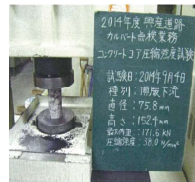 2014年度 興産道路
カルバート点検業務
コンクリートコア圧縮強度試験
試験日:2014年9月4日
種別:頂版下流
直径:75.8mm
高さ:152.4mm
最大荷重:171.5KN
圧縮強度:38.0N/mm²